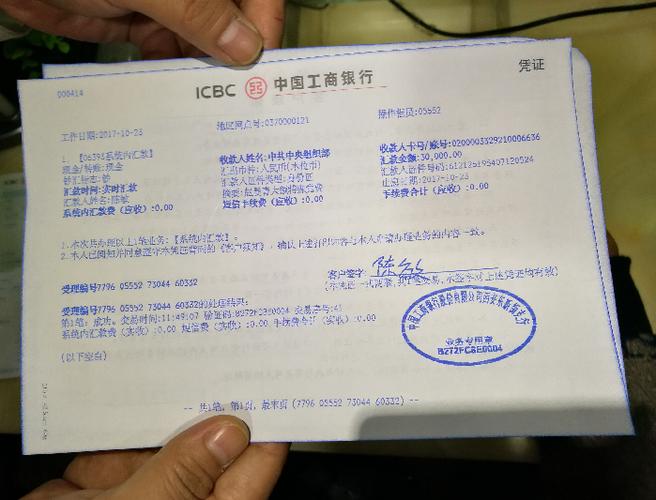 000414
ICBC 中国工商银行
凭证
工作日期:2017-10-23 地区网点号:0370000121 操作柜员:05552
1. 【06393系统内汇款】 收款人姓名:中共中央组织部 收款人卡号/账号:0200003329210006636
现金/转账:现金 汇出币种:人民币(本位币) 汇款金额:30,000.00
钞汇标志:钞 汇款人证件类型:身份证 汇款人证件号码:612125195407120524
汇款时间:实时汇款
汇款人姓名:陈敏 短信手续费(应收):0.00 手续费合计(应收):0.00
系统内汇款费(应收):0.00
1.本次共办理以上1笔业务:【系统内汇款】。
2.本人已阅知并同意遵守本凭证背面的《客户须知》,确认上述打印内容与本人申请办理业务的内容一致。
客户签字:
受理编号7796 05552 73044 60332
受理编号7796 05552 73044 60332的处理结果:
第1笔:成功。交易时间:11:49:07 验证码:B272FC8E0004 交易序号:41
系统内汇款费(实收):0.00 短信费(实收):0.00 手续费合计(实收):0.00
(以下空白)
业务专用章
B272FC8E0004
-- 共1笔, 第1页, 最末页 (7796 05552 73044 60332) --